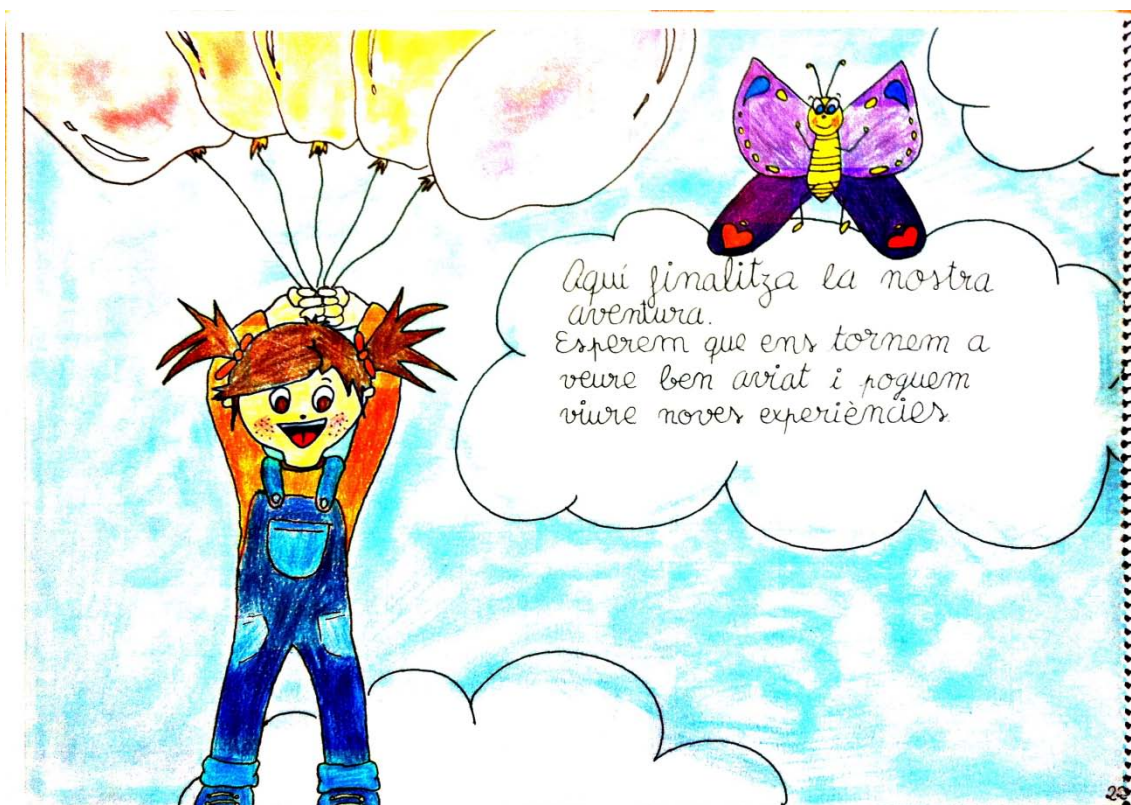 Aquí finalitza la nostra
aventura.
Esperem que ens tornem a
veure ben aviat i poguem
viure noves experiències